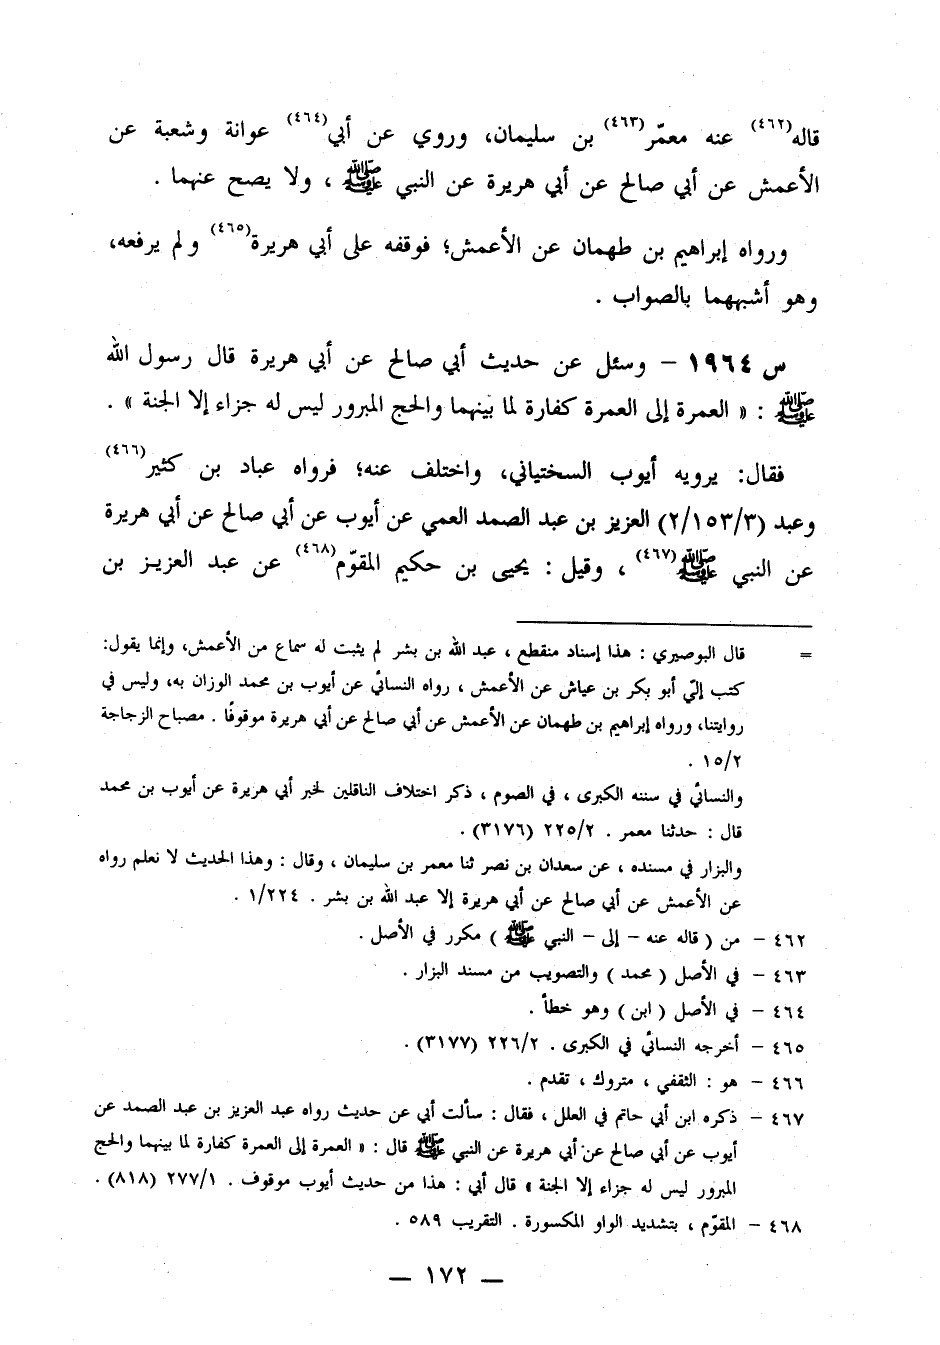 قاله(٤٦٢) عنه معمّر(٤٦٣) بن سليمان، وروي عن أبي(٤٦٤) عوانة وشعبة عن
الأعمش عن أبي صالح عن أبي هريرة عن النبي ﷺ ، ولا يصح عنهما .
ورواه إبراهيم بن طهمان عن الأعمش؛ فوقفه على أبي هريرة(٤٦٥) ولم يرفعه،
وهو أشبههما بالصواب .
س ١٩٦٤ – وسئل عن حديث أبي صالح عن أبي هريرة قال رسول الله
ﷺ : « العمرة إلى العمرة كفارة لما بينهما والحج المبرور ليس له جزاء إلا الجنة » .
فقال: يرويه أيوب السختياني، واختلف عنه؛ فرواه عباد بن كثير(٤٦٦)
وعبد (٢/١٥٣/٣) العزيز بن عبد الصمد العمي عن أيوب عن أبي صالح عن أبي هريرة
عن النبي ﷺ(٤٦٧) ، وقيل : يحيى بن حكيم المقوّم(٤٦٨) عن عبد العزيز بن
= قال البوصيري : هذا إسناد منقطع ، عبد الله بن بشر لم يثبت له سماع من الأعمش، وإنما يقول:
كتب إليّ أبو بكر بن عياش عن الأعمش ، رواه النسائي عن أيوب بن محمد الوزان به، وليس في
روايتنا، ورواه إبراهيم بن طهمان عن الأعمش عن أبي صالح عن أبي هريرة موقوفًا . مصباح الزجاجة
١٥/٢ .
والنسائي في سننه الكبرى ، في الصوم ، ذكر اختلاف الناقلين لخبر أبي هريرة عن أيوب بن محمد
قال : حدثنا معمر . ٢٢٥/٢ (٣١٧٦).
والبزار في مسنده ، عن سعدان بن نصر ثنا معمر بن سليمان ، وقال : وهذا الحديث لا نعلم رواه
عن الأعمش عن أبي صالح عن أبي هريرة إلا عبد الله بن بشر . ١/٢٢٤ .
٤٦٢ – من ( قاله عنه – إلى – النبي ﷺ ) مكرر في الأصل .
٤٦٣ – في الأصل ( محمد ) والتصويب من مسند البزار .
٤٦٤ – في الأصل ( ابن ) وهو خطأ .
٤٦٥ – أخرجه النسائي في الكبرى . ٢٢٦/٢ (٣١٧٧) .
٤٦٦ – هو : الثقفي ، متروك ، تقدم .
٤٦٧ – ذكره ابن أبي حاتم في العلل ، فقال : سألت أبي عن حديث رواه عبد العزيز بن عبد الصمد عن
أيوب عن أبي صالح عن أبي هريرة عن النبي ﷺ قال : « العمرة إلى العمرة كفارة لما بينهما والحج
المبرور ليس له جزاء إلا الجنة » قال أبي : هذا من حديث أيوب موقوف . ٢٧٧/١ (٨١٨) .
٤٦٨ – المقوّم ، بتشديد الواو المكسورة . التقريب ٥٨٩ .
— ١٧٢ —